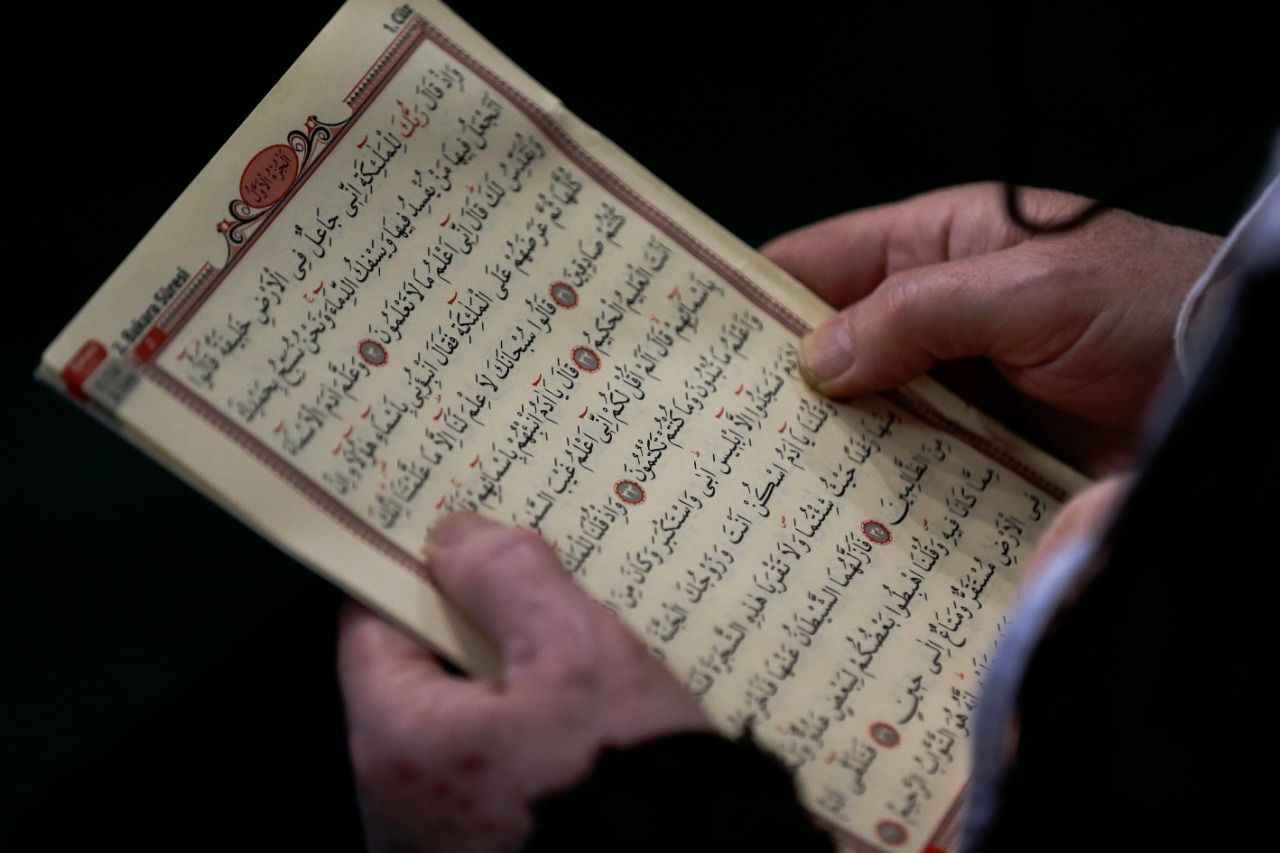 1. Cüz
اَلْجُزْءُ الْاَوَّلُ
2. Bakara Sûresi
وَاِذْ قَالَ رَبُّكَ لِلْمَلٰٓئِكَةِ اِنّٖى جَاعِلٌ فِى الْاَرْضِ خَلٖيفَةًۜ قَالُٓوا
اَتَجْعَلُ فٖيهَا مَنْ يُفْسِدُ فٖيهَا وَيَسْفِكُ الدِّمَٓاءَۚ وَنَحْنُ نُسَبِّحُ بِحَمْدِكَ
وَنُقَدِّسُ لَكَۜ قَالَ اِنّٖٓى اَعْلَمُ مَا لَا تَعْلَمُونَ ﴿٣٠﴾ وَعَلَّمَ اٰدَمَ الْاَسْمَٓاءَ
كُلَّهَا ثُمَّ عَرَضَهُمْ عَلَى الْمَلٰٓئِكَةِ فَقَالَ اَنْبِؤُ۫نٖى بِاَسْمَٓاءِ هٰٓؤُ۬لَٓاءِ اِنْ
كُنْتُمْ صَادِقٖينَ ﴿٣١﴾ قَالُوا سُبْحَانَكَ لَا عِلْمَ لَنَٓا اِلَّا مَا عَلَّمْتَنَاۜ اِنَّكَ
اَنْتَ الْعَلٖيمُ الْحَكٖيمُ ﴿٣٢﴾ قَالَ يَٓا اٰدَمُ اَنْبِئْهُمْ بِاَسْمَٓائِهِمْۚ
بِاَسْمَٓائِهِمْۙ قَالَ اَلَمْ اَقُلْ لَكُمْ اِنّٖٓى اَعْلَمُ غَيْبَ
وَاَعْلَمُ مَا تُبْدُونَ وَمَا كُنْتُمْ تَكْتُمُونَ ﴿٣٣﴾ وَاِذْ قُلْنَا
فَسَجَدُٓوا اِلَّٓا اِبْلٖيسَۜ اَبٰى وَاسْتَكْبَرَ وَكَانَ مِنَ
وَقُلْنَا يَٓا اٰدَمُ اسْكُنْ اَنْتَ وَزَوْجُكَ الْجَنَّةَ
مِنْهَا رَغَدًا حَيْثُ شِئْتُمَا وَلَا تَقْرَبَا هٰذِهِ الشَّجَرَةَ
مِنَ الظَّالِمٖينَ ﴿٣٥﴾ فَاَزَلَّهُمَا الشَّيْطَانُ عَنْهَا
مِمَّا كَانَا فٖيهِ وَقُلْنَا اهْبِطُوا بَعْضُكُمْ لِبَعْضٍ عَدُوٌّ
فِى الْاَرْضِ مُسْتَقَرٌّ وَمَتَاعٌ اِلٰى حٖينٍ ﴿٣٦﴾ فَتَلَقّٰٓى
اِنَّهُ هُوَ التَّوَّابُ الرَّحٖيمُ